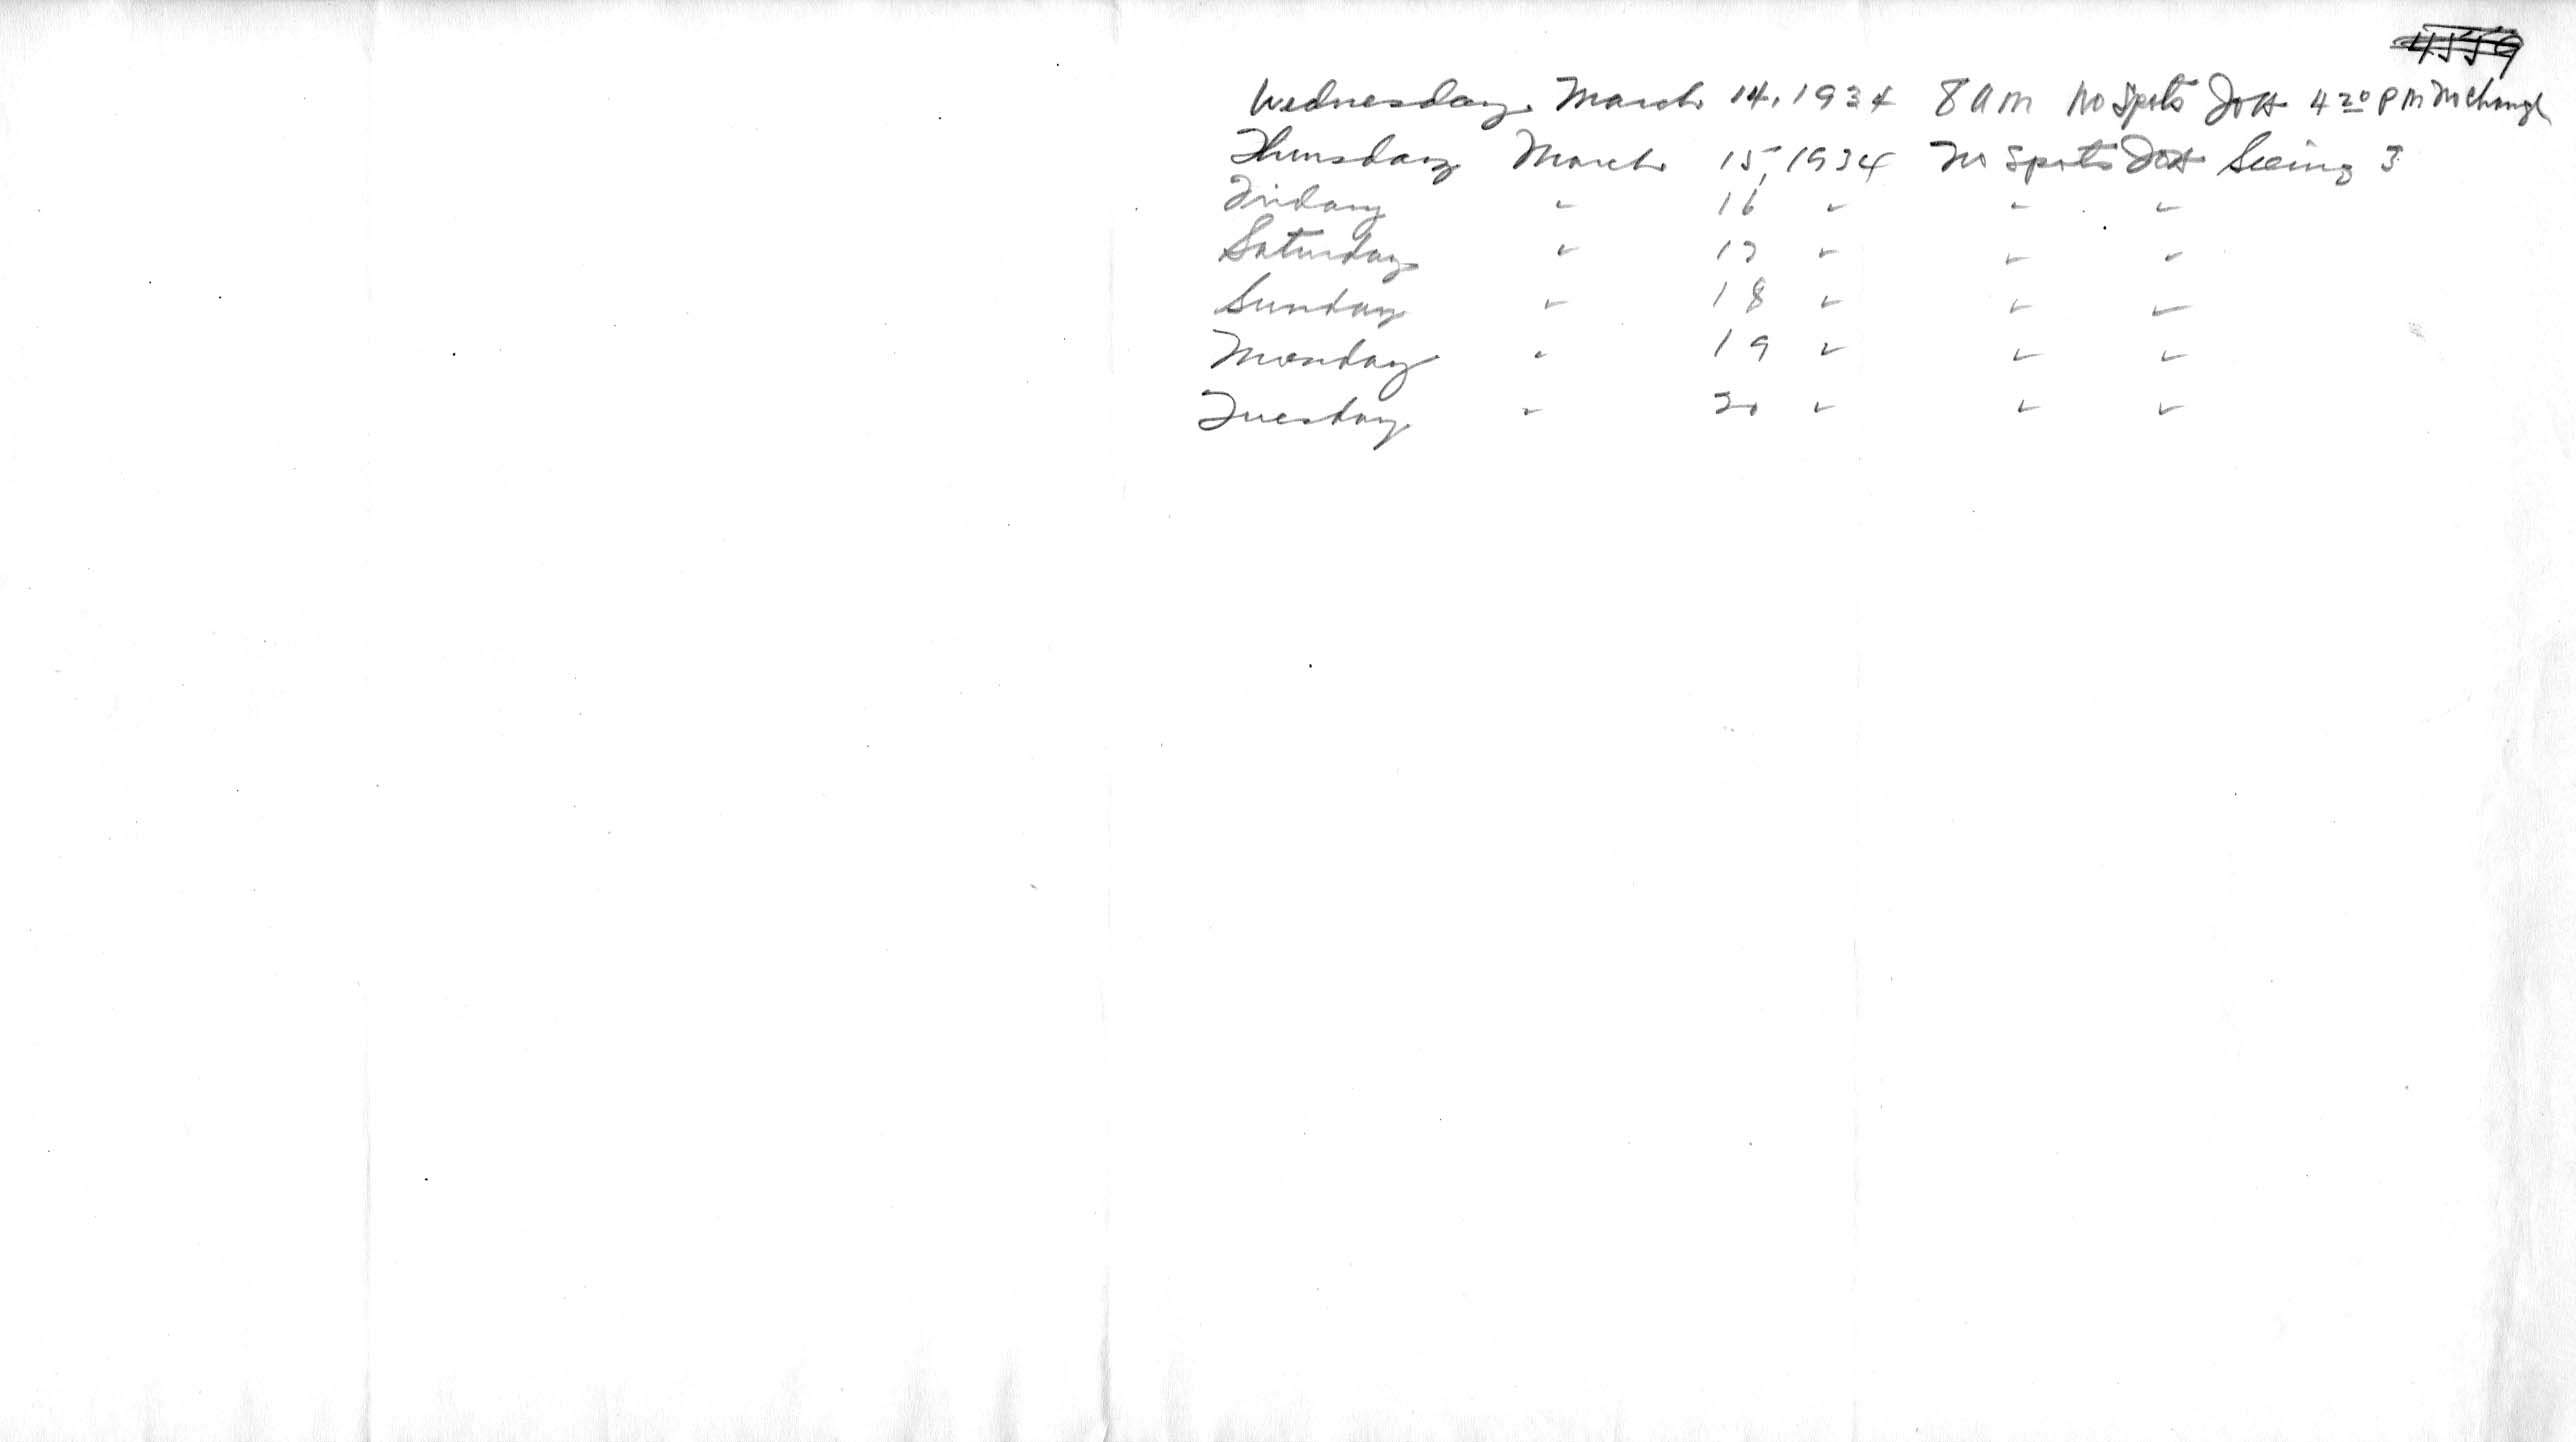 Wednesday March 14, 1934 8 am No Spots JOH 4 20 PM No Change
Thursday March 15, 1934 No Spots JOH Seeing 3
Friday " 16 " " "
Saturday " 17 " " "
Sunday " 18 " " "
Monday " 19 " " "
Tuesday " 20 " " "